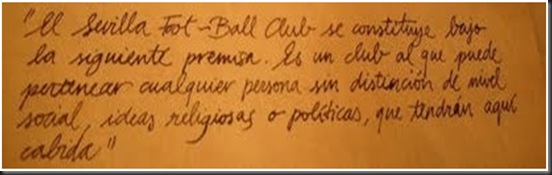 "El Sevilla Foot-Ball Club se constituye bajo
la siguiente premisa. Es un club al que puede
pertenecer cualquier persona sin distinción de nivel
social, ideas religiosas o políticas, que tendrán aquí
cabida"